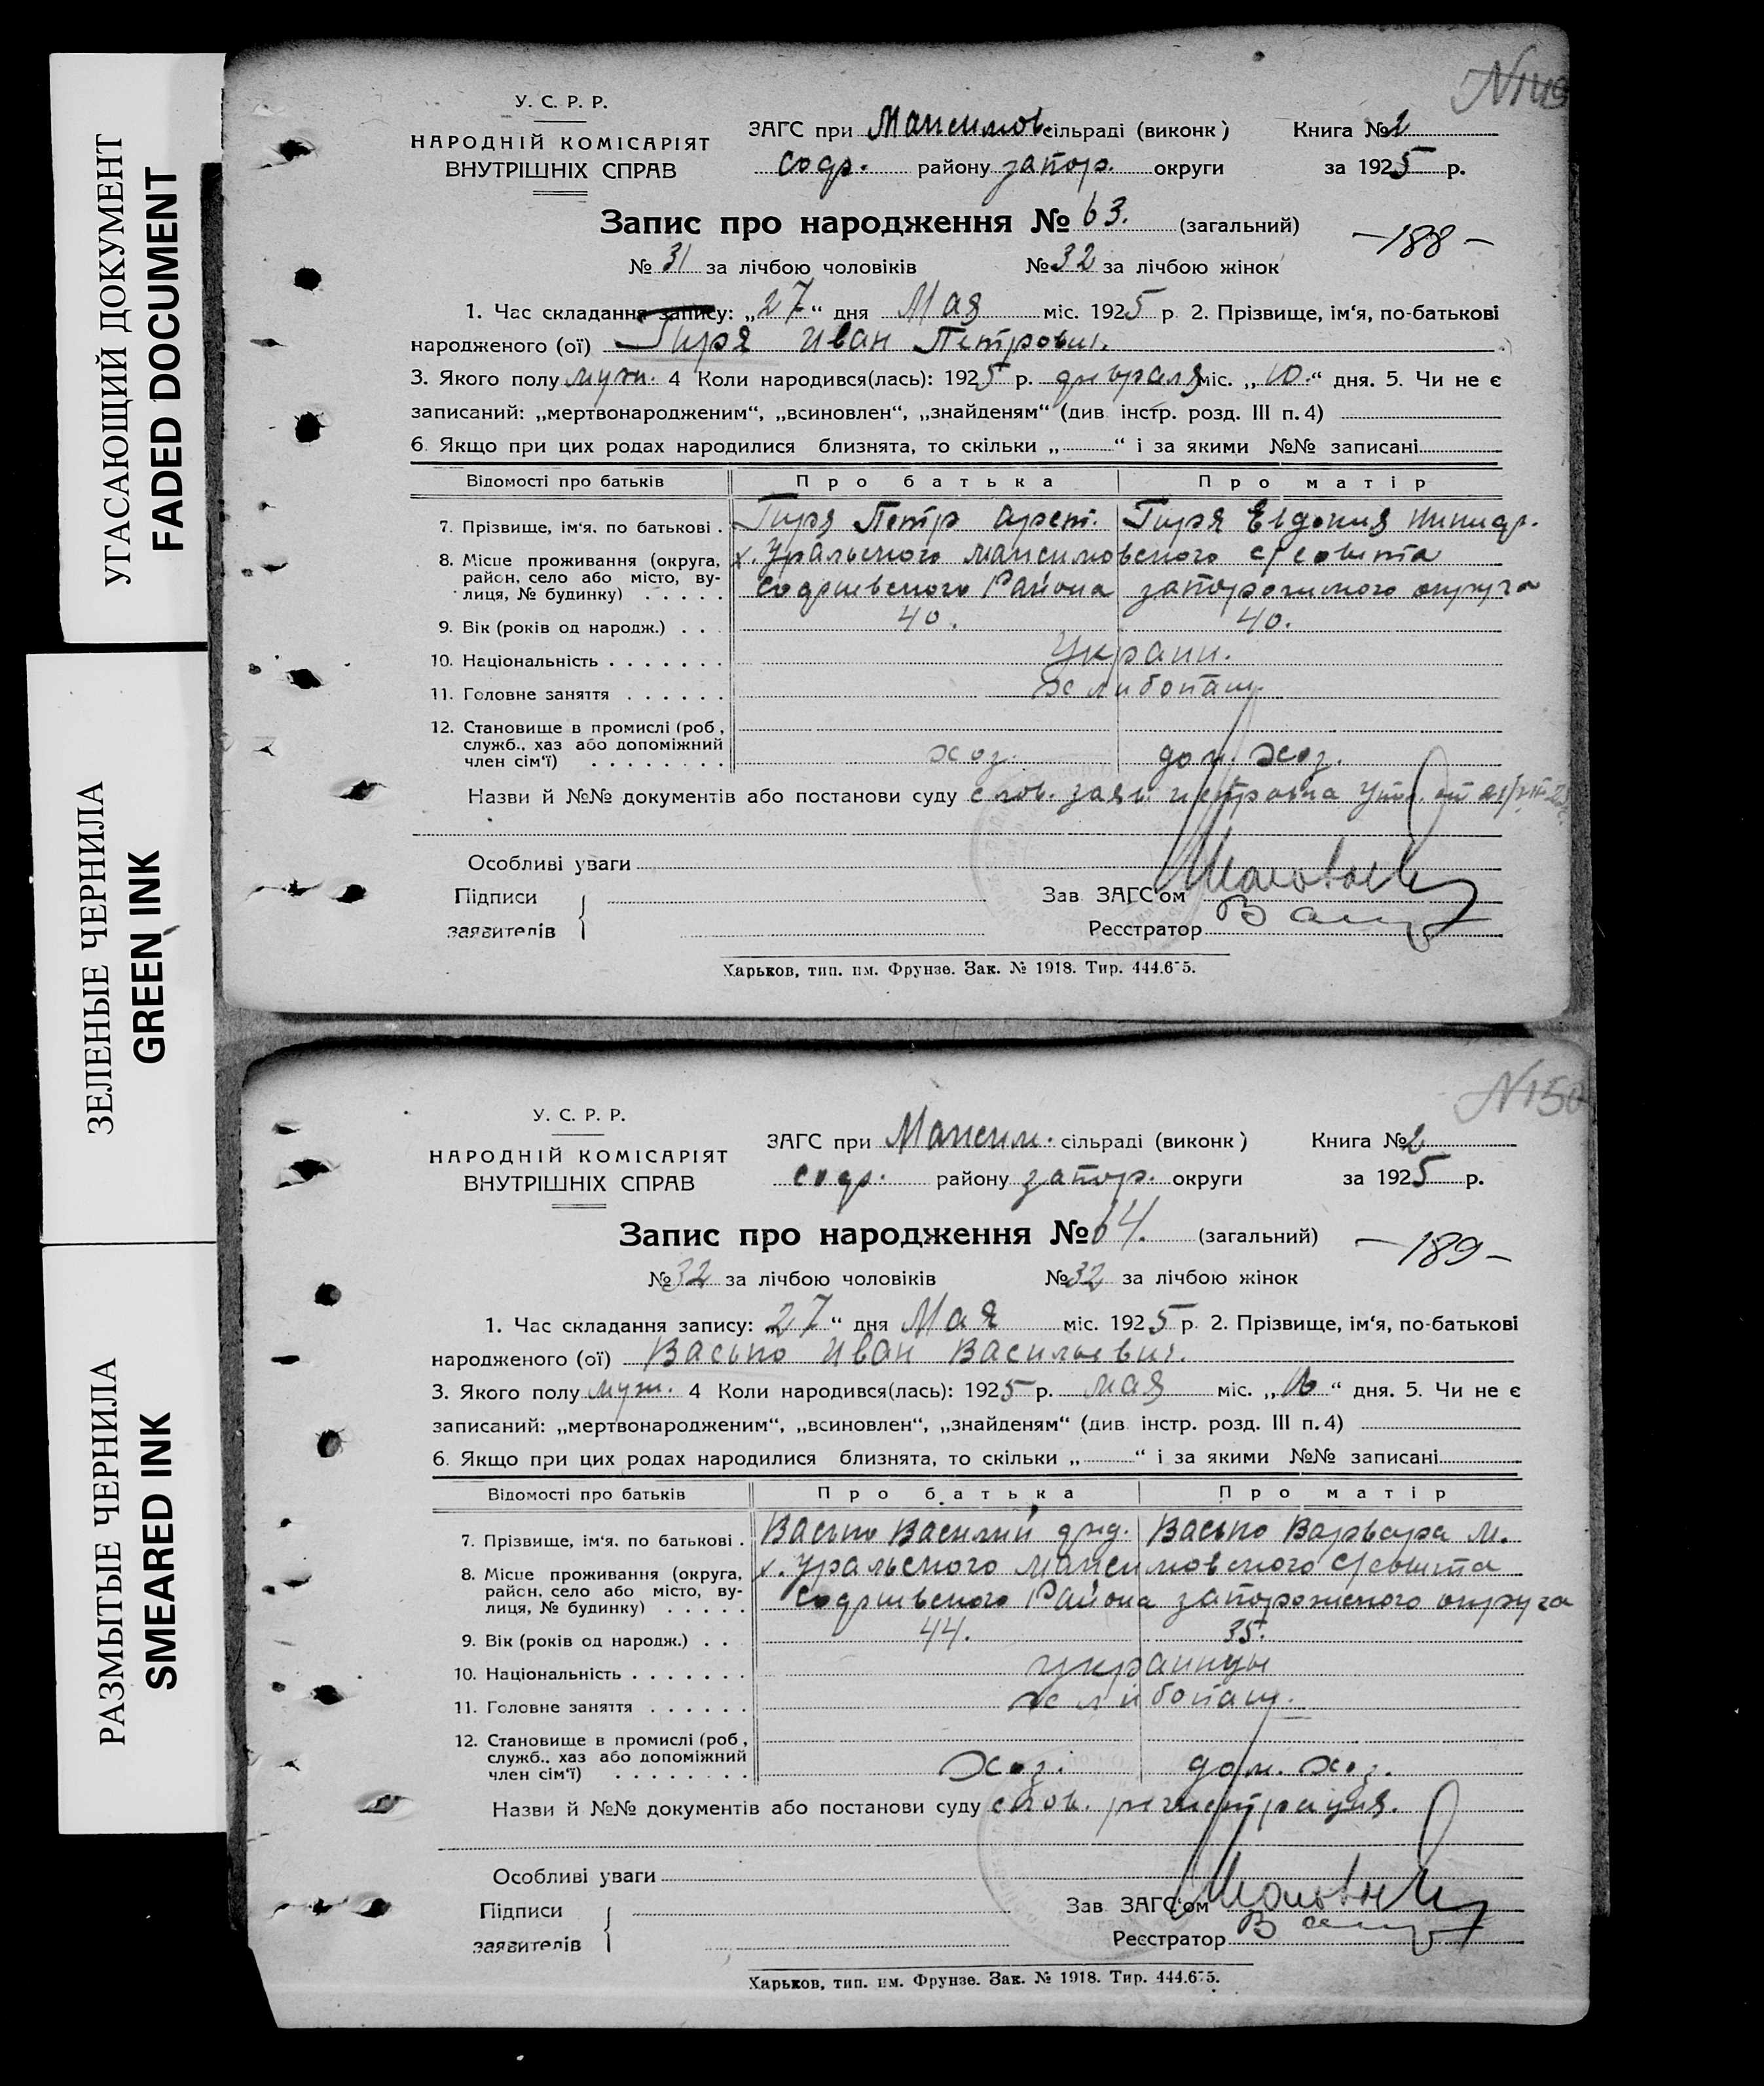 УГАСАЮЩИЙ ДОКУМЕНТ
FADED DOCUMENT
ЗЕЛЕНЫЕ ЧЕРНИЛА
GREEN INK
РАЗМЫТЫЕ ЧЕРНИЛА
SMEARED INK
У. С. Р. Р.
НАРОДНІЙ КОМІСАРІЯТ
ВНУТРІШНІХ СПРАВ
ЗАГС при Максимов сільраді (виконк) Книга № 2
Софі. району запор. округи за 1925 р.
Запис про народження № 63. (загальний)
—188—
№ 31 за лічбою чоловіків № 32 за лічбою жінок
1. Час складання запису: „27“ дня Мая міс. 1925 р 2. Прізвище, ім‘я, по-батькові
народженого (ої) Гиря Иван Петрович.
3. Якого полу муж. 4 Коли народився(лась): 1925 р. февраля міс. „10.“ дня. 5. Чи не є
записаний: „мертвонародженим“, „всиновлен“, „знайденям“ (див інстр. розд. III п. 4)
6. Якщо при цих родах народилися близнята, то скільки „ “ і за якими №№ записані
Відомості про батьків Про батька Про матір
7. Прізвище, ім‘я. по батькові . Гиря Петр Гиря Евдокия
8. Місце проживання (округа, район, село або місто, вулиця, № будинку) . . . . . х. Уральского Максимовского с/совита
Района запорожского округа
9. Вік (років од народж.) . . 40. 40.
10. Національність . . . . . . . Украин.
11. Головне заняття . . . . . . хлибопаш.
12. Становище в промислі (роб, служб., хаз або допоміжний член сім‘ї) . . . . . . . . хоз. дом. хоз.
Назви й №№ документів або постанови суду слов. заяв.
Особливі уваги
Підписи
заявителів
Зав ЗАГС‘ом
Реєстратор
Харьков, тип. им. Фрунзе. Зак. № 1918. Тир. 444.675.
N150
У. С. Р. Р.
НАРОДНІЙ КОМІСАРІЯТ
ВНУТРІШНІХ СПРАВ
ЗАГС при Максим. сільраді (виконк) Книга № 2
Софі. району запор. округи за 1925 р.
Запис про народження № 64. (загальний)
—189—
№ 32 за лічбою чоловіків № 32 за лічбою жінок
1. Час складання запису: „27“ дня Мая міс. 1925 р 2. Прізвище, ім‘я, по-батькові
народженого (ої) Васько Иван Васильевич.
3. Якого полу муж. 4 Коли народився(лась): 1925 р. мая міс. „ “ дня. 5. Чи не є
записаний: „мертвонародженим“, „всиновлен“, „знайденям“ (див інстр. розд. III п. 4)
6. Якщо при цих родах народилися близнята, то скільки „ “ і за якими №№ записані
Відомості про батьків Про батька Про матір
7. Прізвище, ім‘я. по батькові . Васько Василий Васько Варвара М.
8. Місце проживання (округа, район, село або місто, вулиця, № будинку) . . . . . х. Уральского Максимовского с/совита
Района запорожского округа
9. Вік (років од народж.) . . 44. 35.
10. Національність . . . . . . . украинцы
11. Головне заняття . . . . . . хлибопаш.
12. Становище в промислі (роб, служб., хаз або допоміжний член сім‘ї) . . . . . . . . Хоз. дом. хоз.
Назви й №№ документів або постанови суду слов. регистрация.
Особливі уваги
Підписи
заявителів
Зав ЗАГС‘ом
Реєстратор
Харьков, тип. им. Фрунзе. Зак. № 1918. Тир. 444.675.